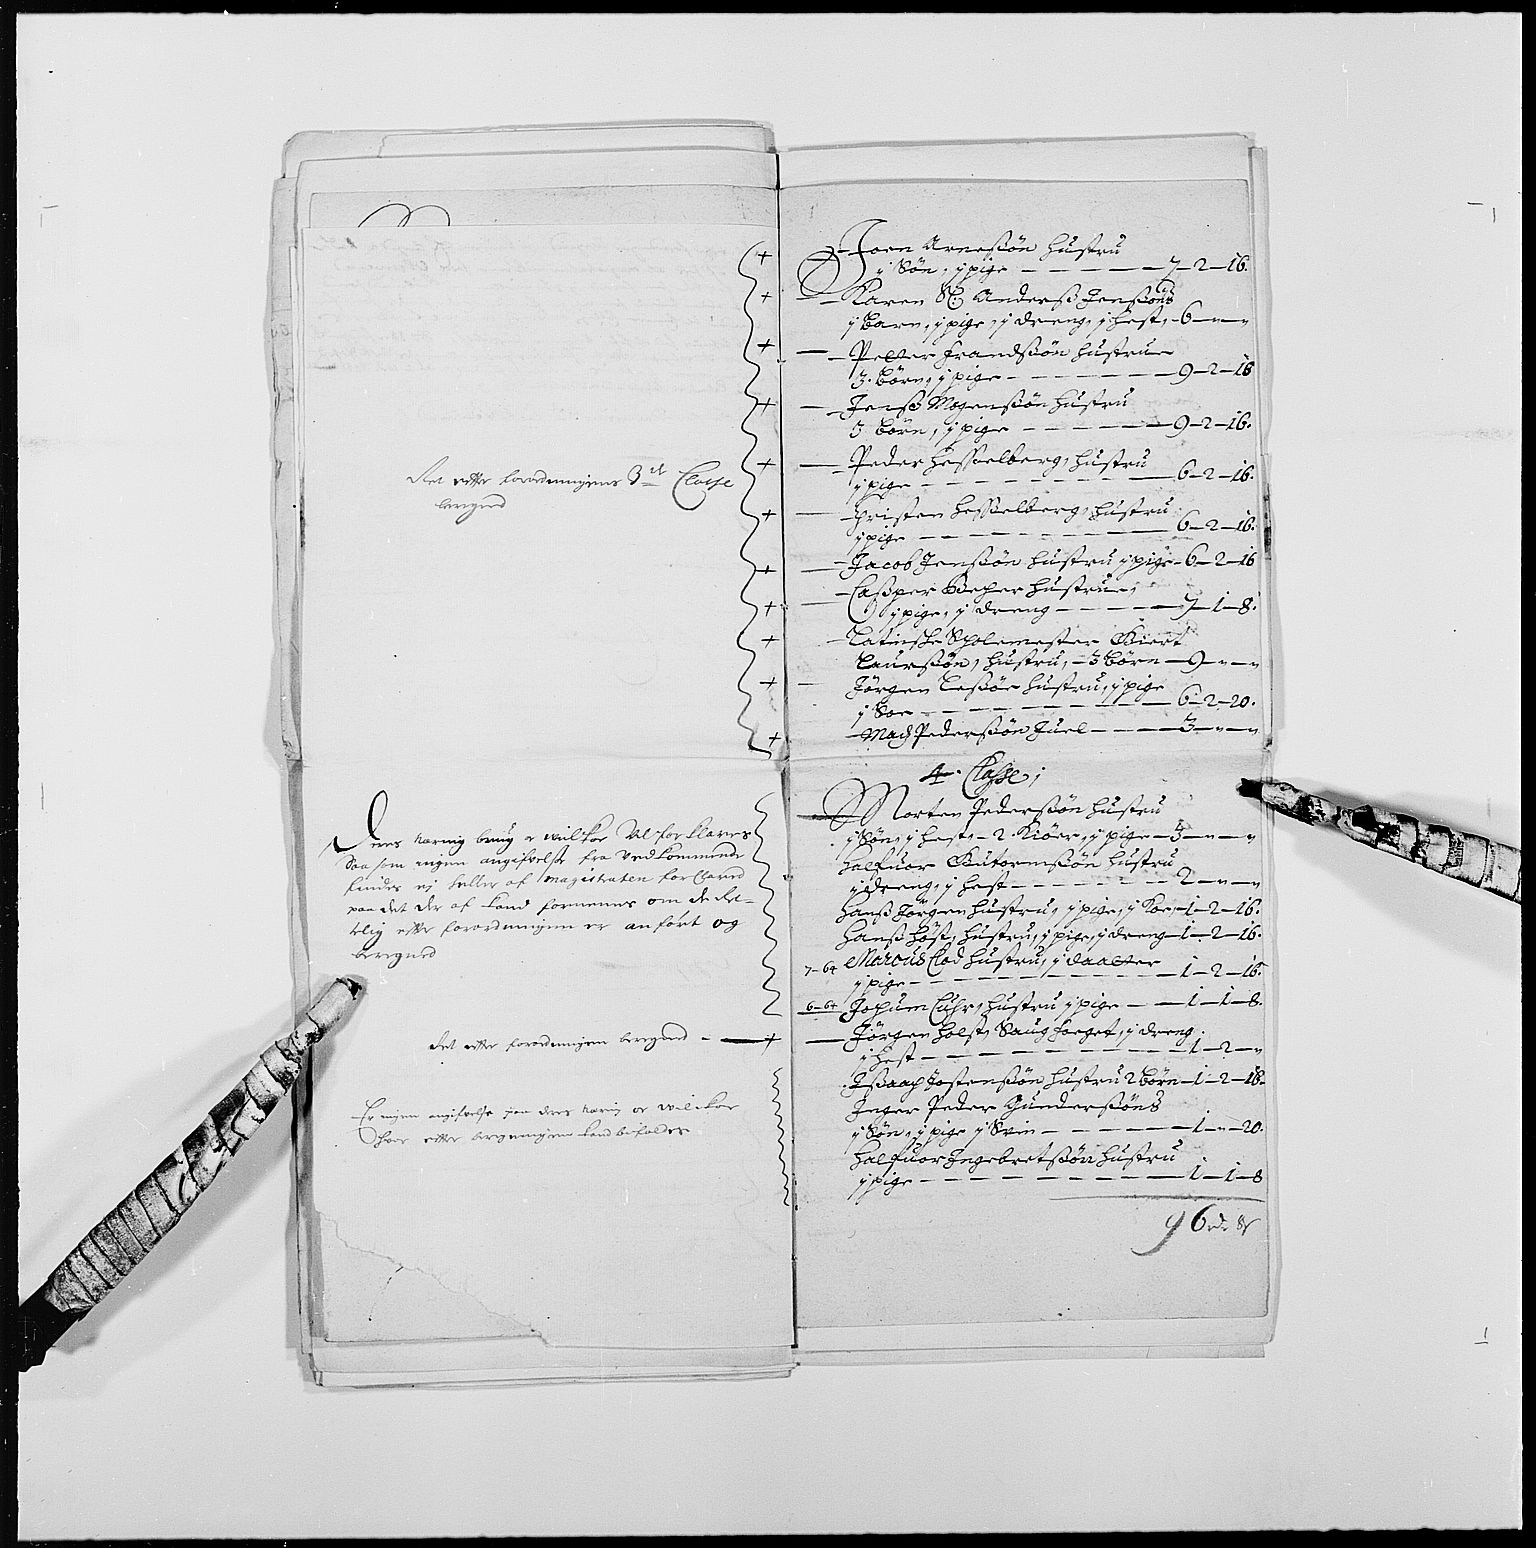 Det effter forordningens 3die Classe
beregned
Deres næring brug e wilkor Vel forklares
Saa som ingen angifvelse fra Vedkommende
findes ej heller af Magistraten forklared
paa det der af kand fornemmes om de Ret-
telig effter forordningen er anført og
beregned
Det effter forordningen beregned
Er ingen angifvelse paa deres næring oc wilckor
hvor effter beregningen kand befaldes
Joen Arnessøn hustru
j Søn, j pige — 7-2-16.
Karen Sl: Anderss Jenssøns
j barn, j pige, j dreng, j hest, 6-"-"
Petter Frandssøn hustrue
3. børn, j pige — 9-2-16
Jenss Mogenssøn hustru
3 børn, j pige — 9-2-16.
Peder Hesselberg, hustru
j pige — 6-2-16.
Christen Hesselberg, hustru
j pige — 6-2-16.
Jacob Jenssøn hustru j pige - 6-2-16
Cassper Becher hustrue,
j pige, j dreng — 7-1-8.
Latinske Scholemester Giert
Laurssøn, hustru, 3 børn — 9-"-"
Jørgen Lessøe hustru, j pige
j Soe — 6-2-20.
Madz Pederssøn Juel — 3-"-"
4. Classe,
Morten Pederssøn hustru
j Søn, j hest, 2. Kiøer, j pige — 3-"-"
Halfuor Guttormssøn hustru
j dreng, j hest — 2-"-"
Hanss Jørgen hustru, j pige, j Koe, 1-2-16.
Hanss Høst, hustru, j pige, j dreng — 1-2-16.
7-64 Marcus Clod hustru, j daatter
j pige — 1-2-16.
6-64 Jochum Luhr, hustru j pige — 1-1-8.
Jørgen Holst, Saugfoeget, j dreng.
j hest — 1-2-"
Issaach Jostenssøn hustru 2 børn — 1-2-16.
Inger Peder Gunderssøns
j Søn, j pige j Svin — 1-"-20.
Halfuor Ingebretssøn hustru
j pige — 1-1-8
96 rdr